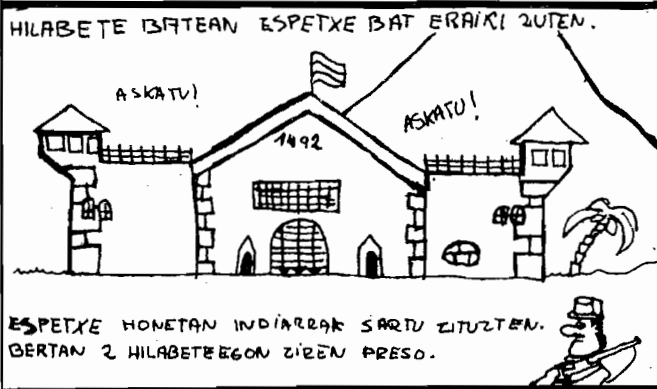 HILABETE BATEAN ESPETXE BAT ERAIKI ZUTEN.
ASKATU!
ASKATU!
1492
ESPETXE HONETAN INDIARRAK SARTU ZITUZTEN.
BERTAN 2 HILABETE EGON ZIREN PRESO.